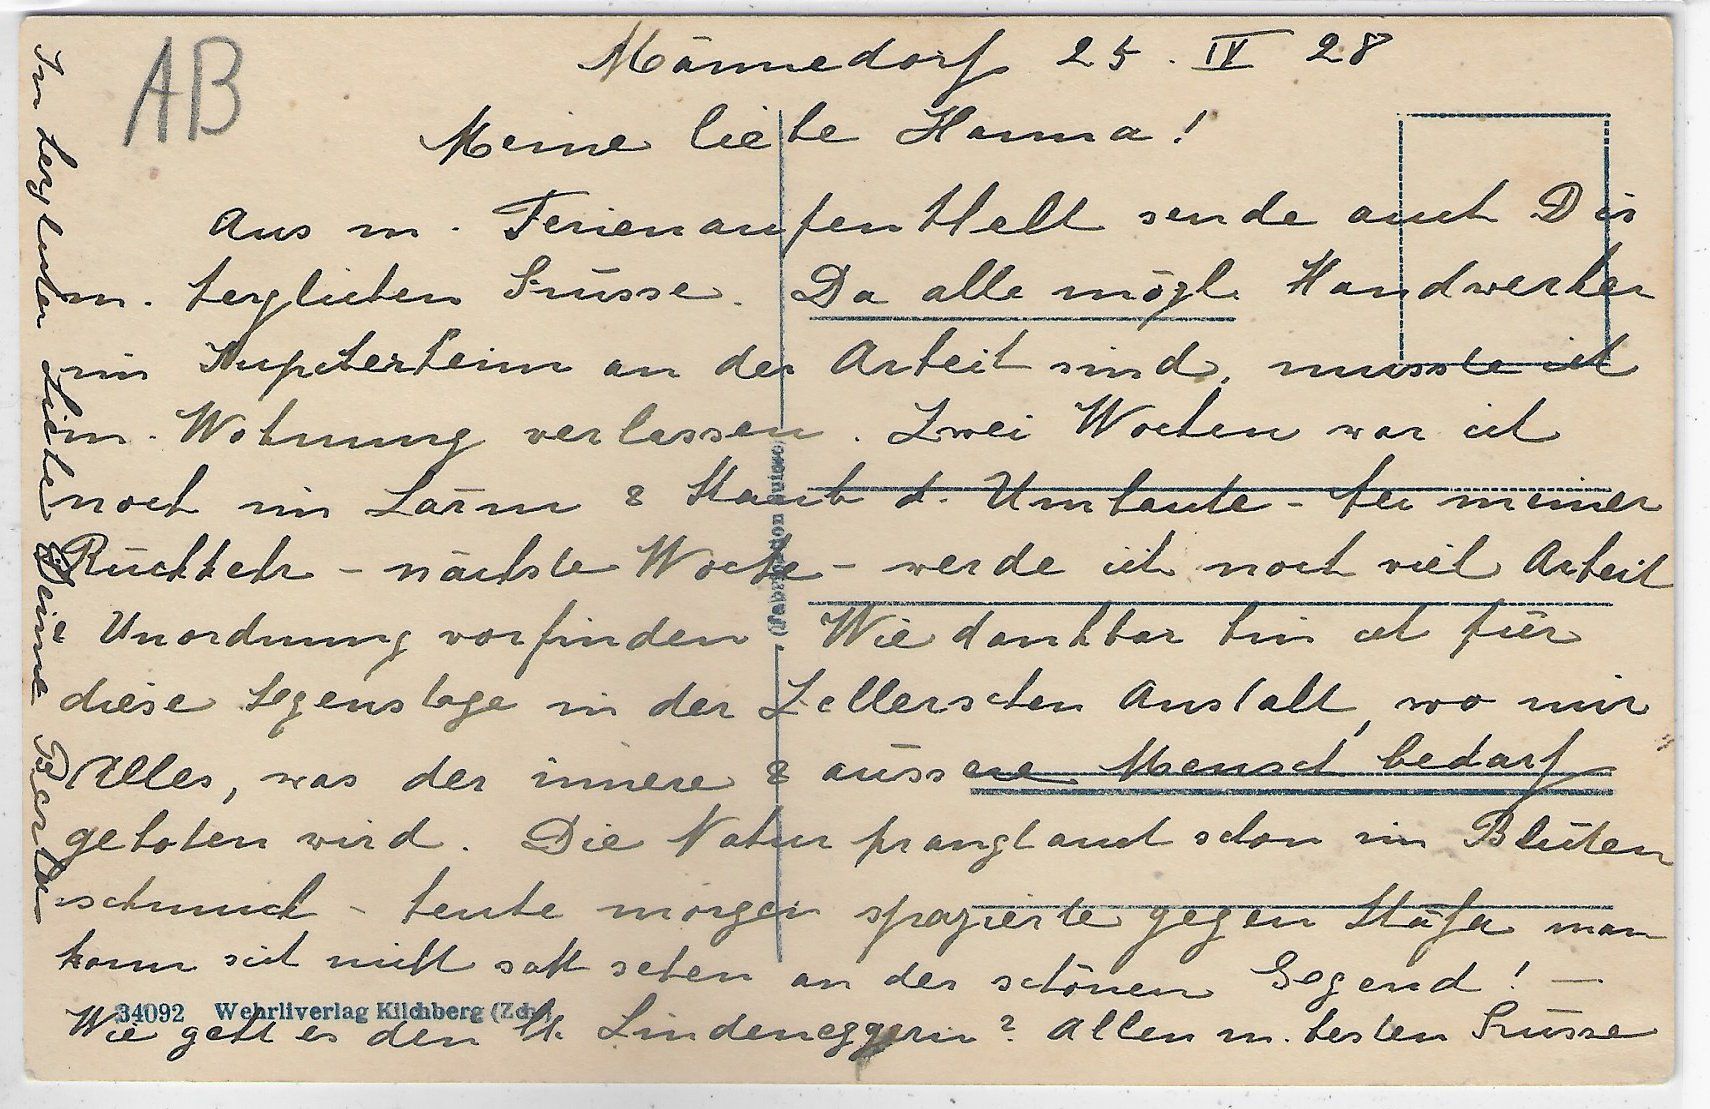 AB
Männedorf 25. IV 28
Meine liebe Hanna!
Aus m. Ferienaufenthalt sende auch Dir
m. herzlichen Grüsse. Da alle mögl. Handwerker
im Jupiterheim an der Arbeit sind, musste ich
m. Wohnung verlassen. Zwei Wochen war ich
noch im Lärm & Staub d. Umbaute - bei meiner
Rückkehr - nächste Woche - werde ich noch viel Arbeit
Unordnung vorfinden Wie dankbar bin ich für
diese Segenstage in der Zellerschen Anstalt, wo mir
Alles, was der innere & äussere Mensch bedarf
geboten wird. Die Natur prangt auch schon im Blüten
schmuck - heute morgen spazierte gegen Stäfa man
kann sich nicht satt sehen an der schönen Gegend! -
Wie geht es den lb. Lindeneggern? Allen m. besten Grüsse
In herzlicher Liebe Deine Berta
(Fabrication suisse)
34092 Wehrliverlag Kilchberg (Zch)